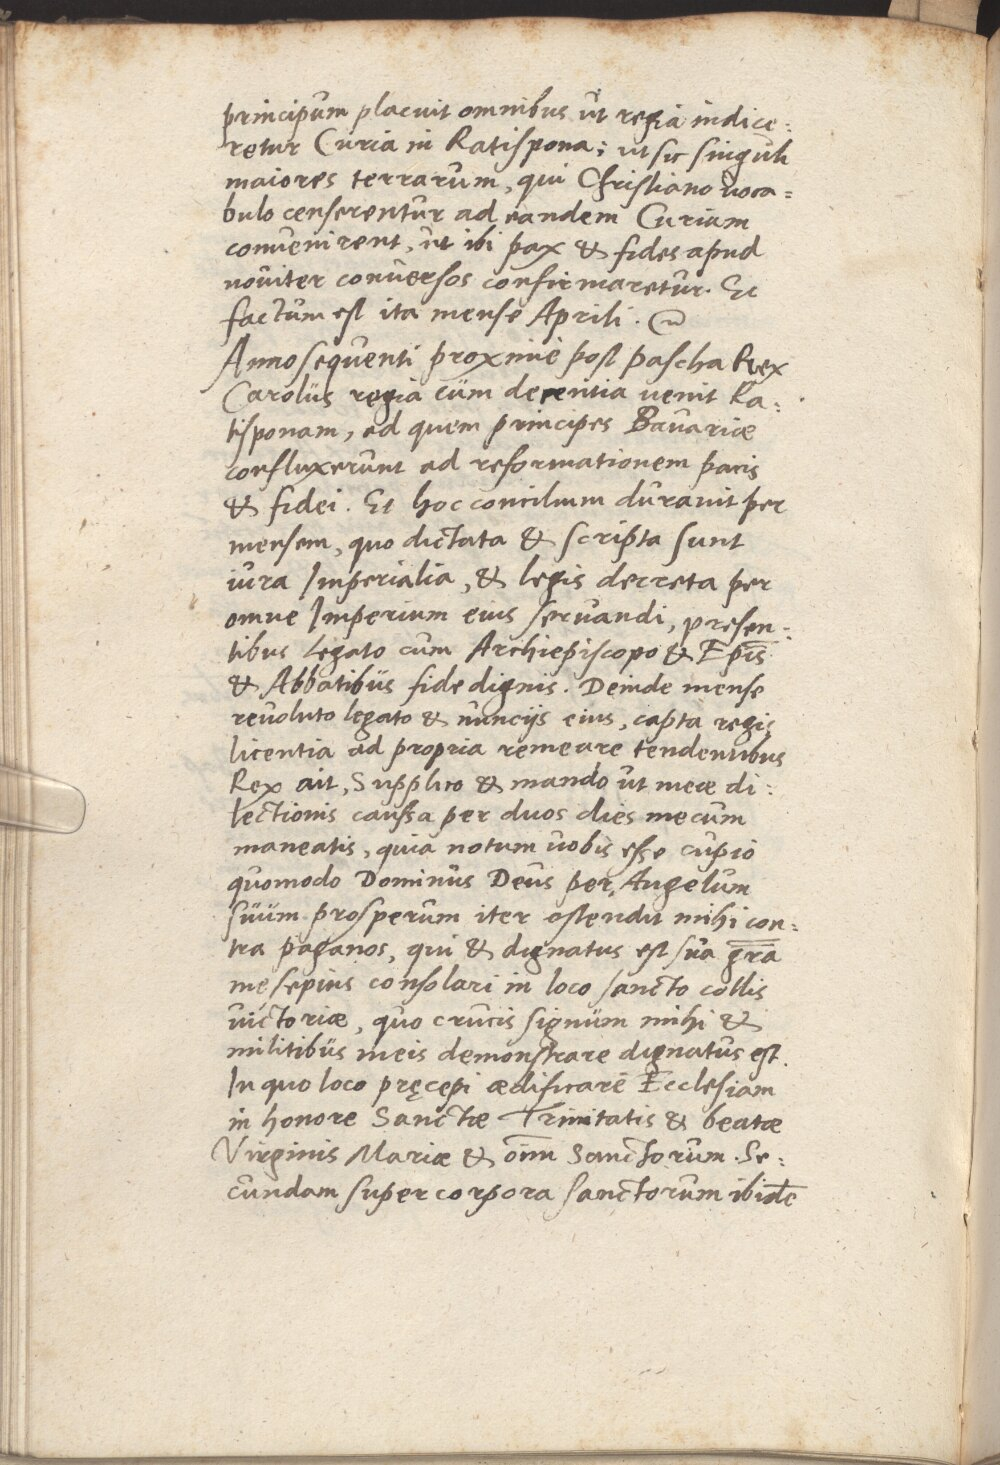 principum placuit omnibus ut regia indice=
retur Curia in Ratispona; ut sic singuli
maiores terrarum, qui Christiano uoca=
bulo censerentur ad eandem Curiam
convenirent, ut ibi pax & fides apud
noviter conversos confirmaretur. Et
factum est ita mense Aprili.
Anno sequenti proxime post pascha Rex
Carolus regia cum decentia uenit Ra=
tisponam, ad quem principes Bavariæ
confluxerunt ad reformationem pacis
& fidei. Et hoc concilium durauit per
mensem, quo dictata & scripta sunt
iura Imperialia, & legis decreta per
omne Imperium eius servandi, presen=
tibus Legato cum Archiepiscopo & Ep̄is
& Abbatibus fide dignis. Deinde mense
revoluto legato & nuncijs eius, capta regis
licentia ad propria remeare tendentibus
Rex ait, Supplico & mando ut meæ di=
lectionis caussa per duos dies mecum
maneatis, quia notum uobis esse cupio
quomodo Dominus Deus per Angelum
suum prosperum iter ostendit mihi con=
tra paganos, qui & dignatus est sua gr̄a
me sepius consolari in loco sancto collis
uictoriæ, quo crucis signum mihi &
militibus meis demonstrare dignatus est.
In quo loco pręcepi ædificare Ecclesiam
in honore Sanctæ Trinitatis & beatæ
Virginis Mariæ & oīm Sanctorum. Se=
cundam super corpora sanctorum ibidē